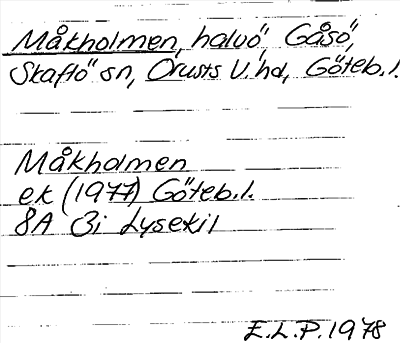 Måkholmen, halvö, Gåsö,
Skaftö sn, Orusts V. hd, Göteb. l.
Måkholmen
ek (1977) Göteb. l.
8A 3i Lysekil
E.L.P. 1978